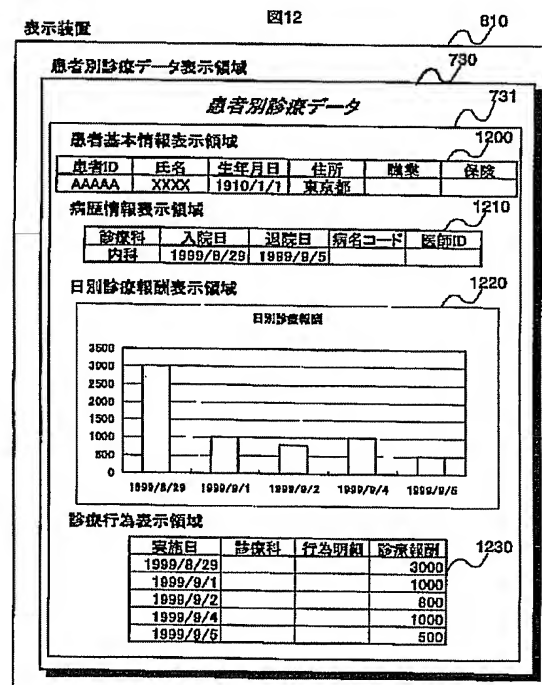 図12
表示装置
810
患者別診療データ表示領域
730
患者別診療データ
731
患者基本情報表示領域
1200
患者ID 氏名 生年月日 住所 職業 保険
AAAAA XXXX 1910/1/1 東京都
病歴情報表示領域
1210
診療科 入院日 退院日 病名コード 医師ID
内科 1999/8/29 1999/9/5
日別診療報酬表示領域
1220
日別診療報酬
3500
3000
2500
2000
1500
1000
500
0
1999/8/29 1999/9/1 1999/9/2 1999/9/4 1999/9/5
診療行為表示領域
1230
実施日 診療科 行為明細 診療報酬
1999/8/29 3000
1999/9/1 1000
1999/9/2 800
1999/9/4 1000
1999/9/5 500